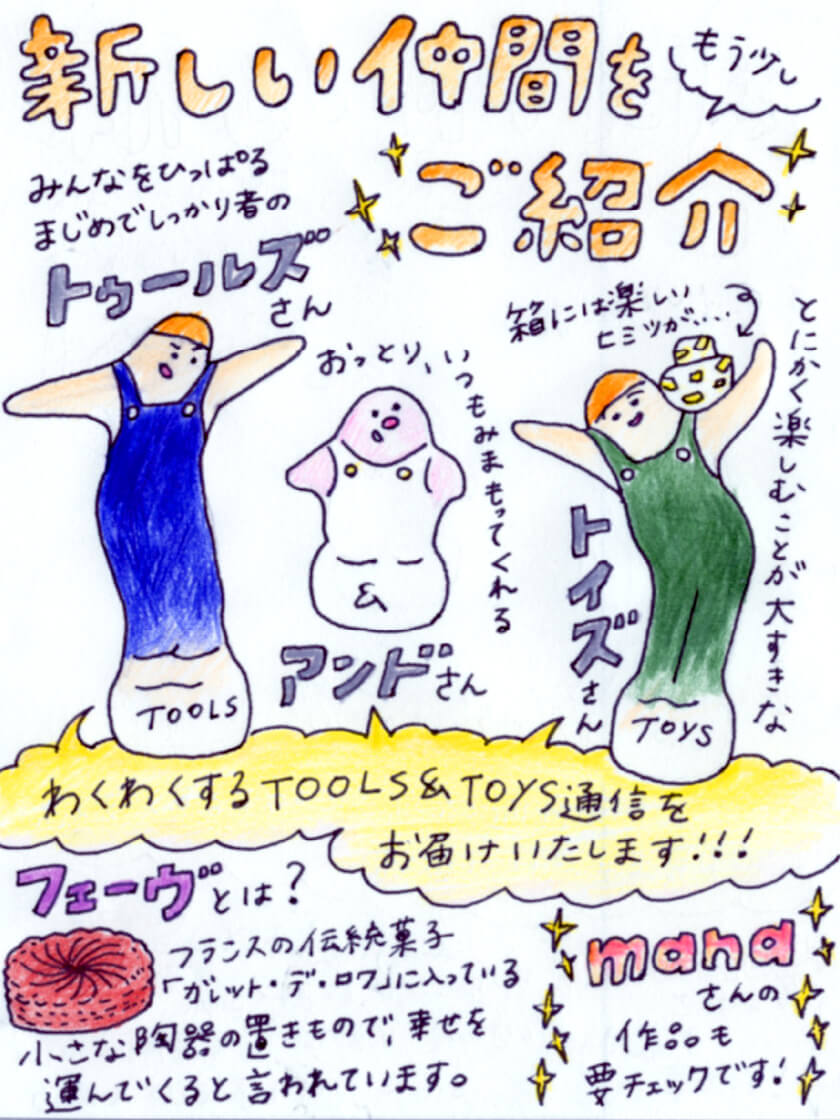 新しい仲間を
もう少し
ご紹介
みんなをひっぱる
まじめでしっかり者の
トゥールズ
さん
おっとり、いつもみまもってくれる
アンドさん
箱には楽しい
ヒミツが....
とにかく楽しむことが大すきな
トイズさん
TOOLS
&
TOYS
わくわくするTOOLS&TOYS通信を
お届けいたします!!!
フェーヴとは?
フランスの伝統菓子
「ガレット・デ・ロワ」に入っている
小さな陶器の置きもので、幸せを
運んでくると言われています。
mana
さんの
作品も
要チェックです!